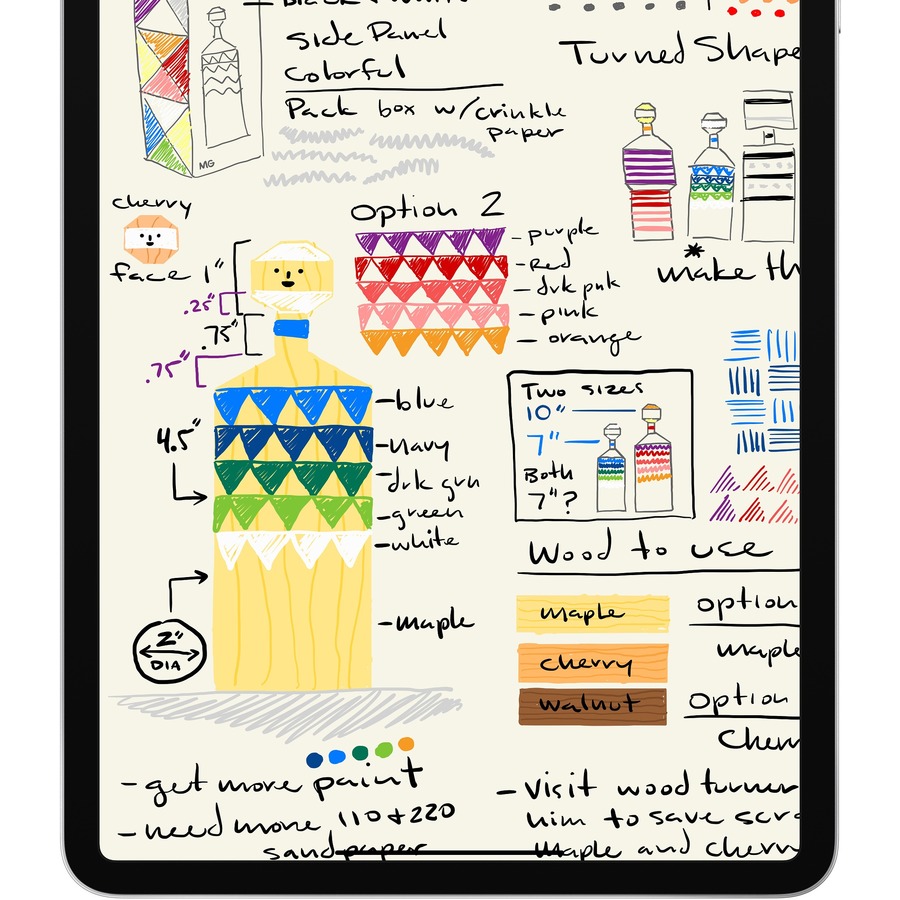 side Panel
Colorful
Pack box w/crinkle
paper
MG
Turned Shape
cherry
face
Option 2
purple
Red
drk pnk
pink
orange
make th
1"
.25"
.75"
.75"
4.5"
blue
Navy
drk grn
green
white
maple
2"
DIA
Two sizes
10"
7"
Both
7"?
Wood to use
maple
cherry
walnut
option
maple
Option
Cherr
- get more paint
- need more 110 + 220
sandpaper
- Visit wood turner
him to save scr
maple and cherry